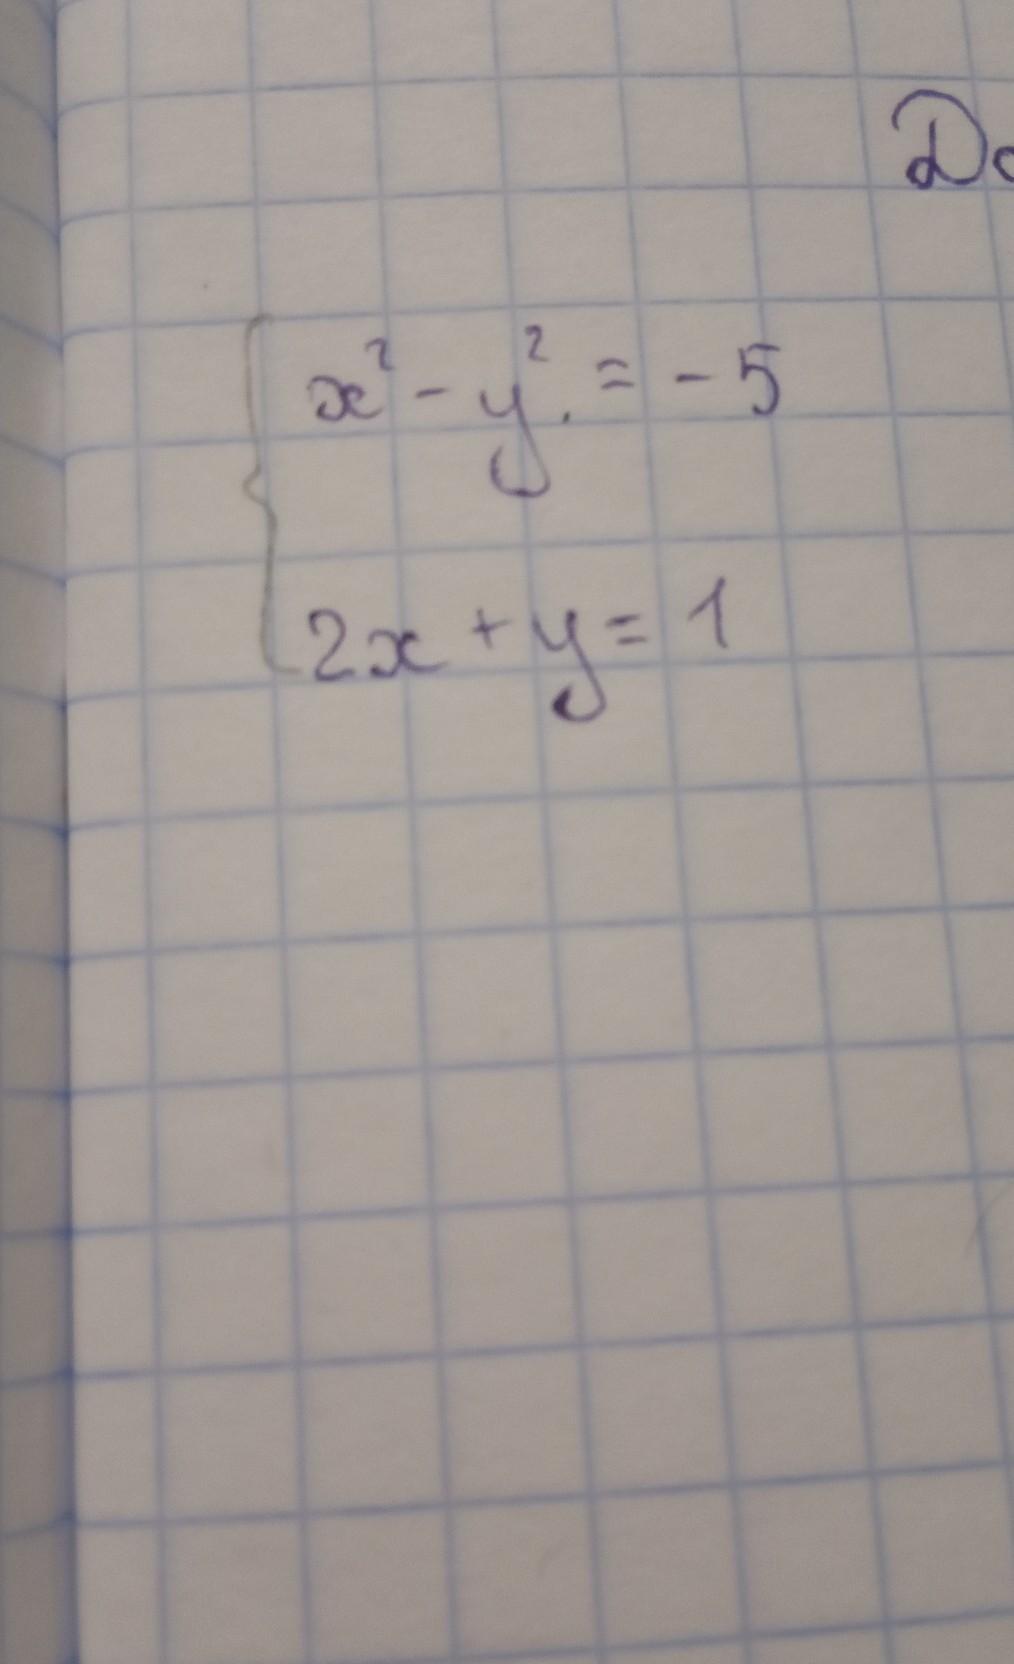 x² - y². = - 5
2x + y = 1